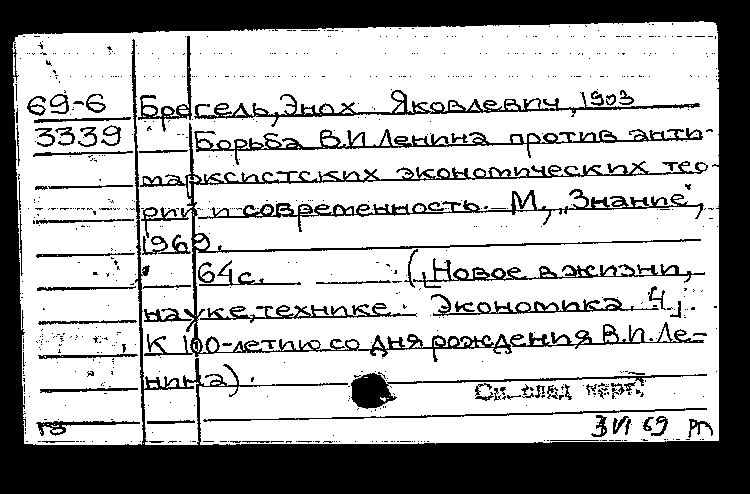 69-6 Брегель, Энох Яковлевич, 1903
3339 Борьба В.И. Ленина против анти-
марксистских экономических тео-
рий и современность. М, „Знание",
1969.
64с. („Новое в жизни,
науке, технике. Экономика. 4".
К 100-летию со дня рождения В.И. Ле-
нина).
См. след карт.
гв 3 VI 69